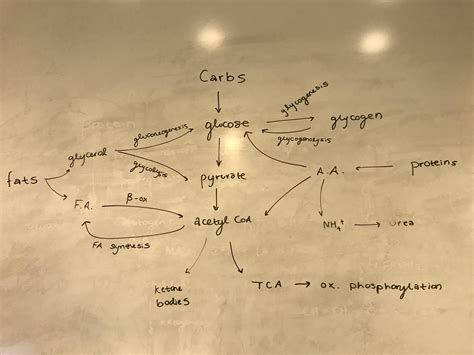 Carbs
glycogenesis
glucose
glycogen
glycogenolysis
gluconeogenesis
glycerol
glycolysis
fats
pyruvate
A.A.
proteins
F.A.
β-ox
acetyl CoA
NH₄⁺
urea
FA synthesis
ketone
bodies
TCA → ox. phosphorylation